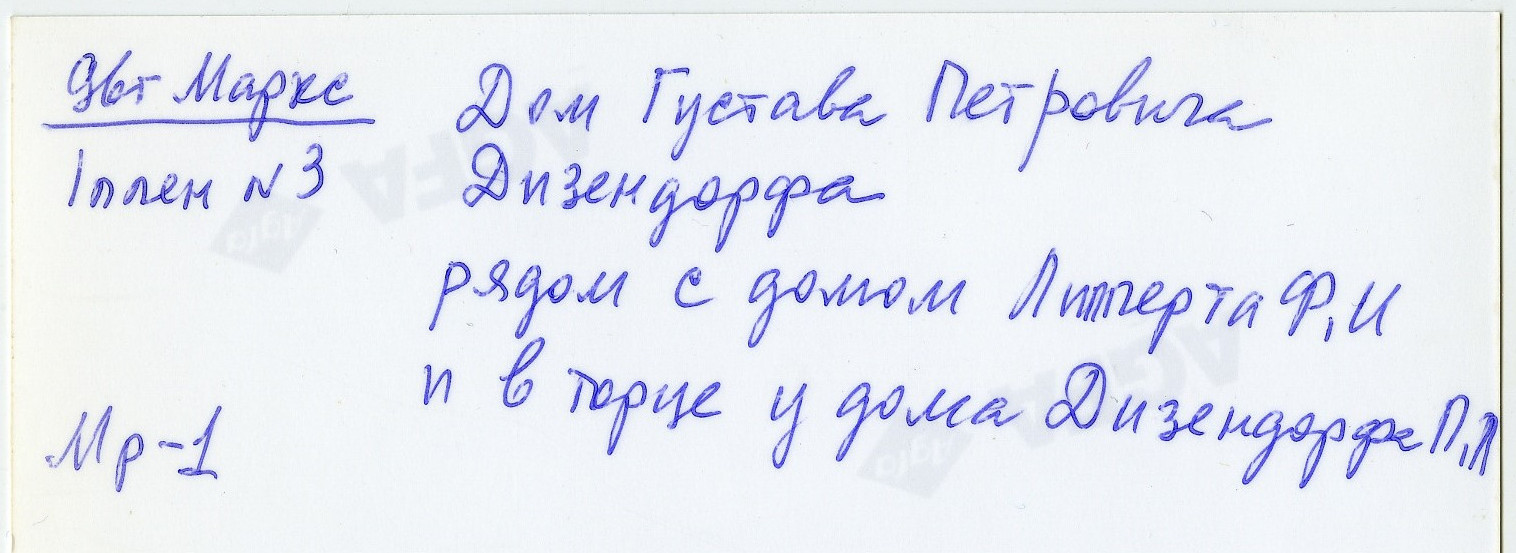 Маркс
Дом Густава Петровича
1 плен N 3
Дизендорфа
рядом с домом Липперта Ф, И
и в торце у дома Дизендорфа П, П
Мр-1
AGFA
Agfa
AGFA
Agfa